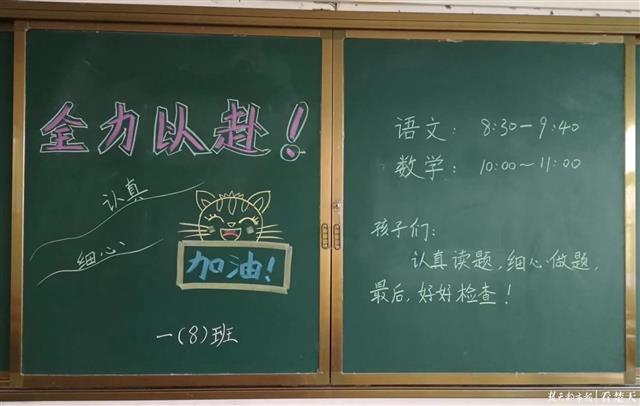 全力以赴！
认真
细心
加油！
一(8)班
语文： 8:30—9:40
数学： 10:00～11:00
孩子们：
认真读题，细心做题，
最后，好好检查！
楚天都市报 看楚天